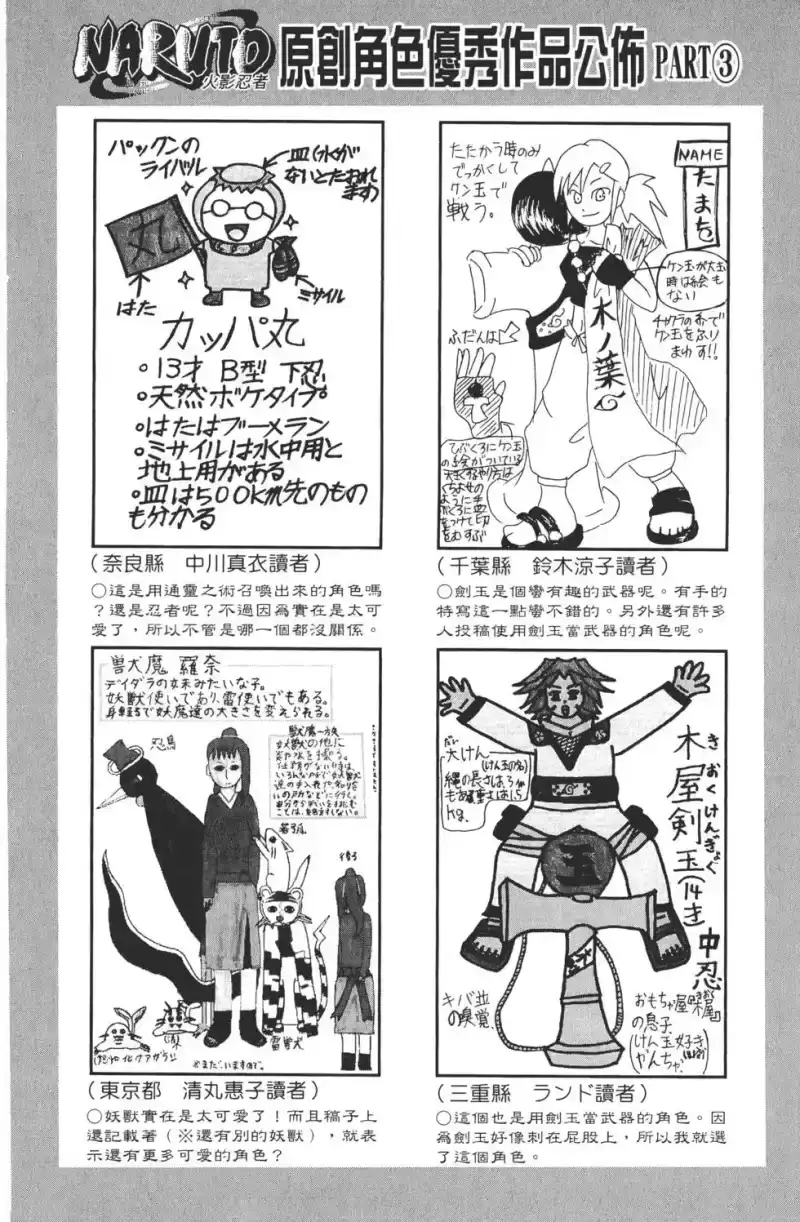 NARUTO
火影忍者
原創角色優秀作品公佈 PART③
パックンの
ライバル
皿(水)が
ないとたおれ
ます
丸
はた
ミサイル
カッパ丸
・13才 B型 下忍
・天然ボケタイプ
・はたはブーメラン
・ミサイルは水中用と
地上用がある
・皿は500km先のもの
も分かる
(奈良縣 中川真衣讀者)
○這是用通靈之術召喚出來的角色嗎
?還是忍者呢?不過因為實在是太可
愛了,所以不管是哪一個都沒關係。
たたかう時のみ
でっかくして
ケン玉で
戦う。
NAME
たまち
ケン玉が大玉
時は絵も
ない
チャクラの糸で
ケン玉をふり
まわす!!
ふだんは
木ノ葉
(千葉縣 鈴木涼子讀者)
○劍玉是個蠻有趣的武器呢。有手的
特寫這一點蠻不錯的。另外還有許多
人投稿使用劍玉當武器的角色呢。
獣犬魔 羅奈
デイダラの妹みたいな子。
妖獣使いであり、雷使いでもある。
身軽で妖魔達の大きさを変えられる。
忍鳥
雷獣犬
※まだ、いますので。
(東京都 清丸惠子讀者)
○妖獸實在是太可愛了!而且稿子上
還記載著(※還有別的妖獸),就表
示還有更多可愛的角色?
大けん
(けん玉の名)
縄の長さは
kg。
玉
木屋剣玉(14才)
きおくけんぎょく
中忍
キバ並
の嗅覚。
おもちゃ屋『木屋』
の息子
(けん玉好き)
やんちゃ
(三重縣 ランド讀者)
○這個也是用劍玉當武器的角色。因
為劍玉好像刺在屁股上,所以我就選
了這個角色。